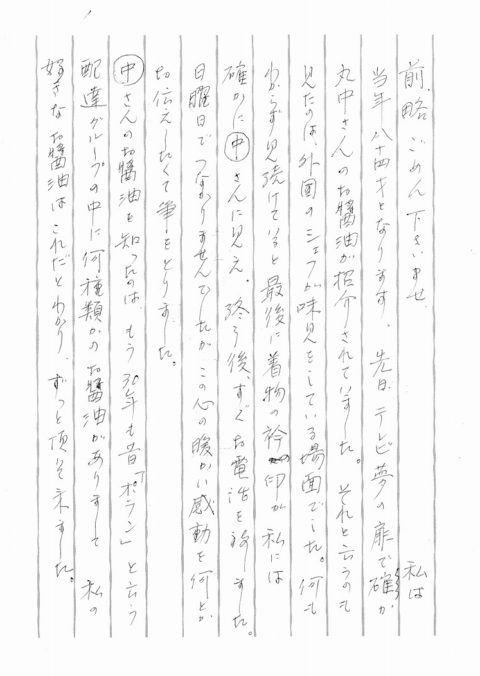 前略 ごめん下さいませ 私は
当年八十四才となります。先日、テレビ夢の扉で確か
丸中さんのお醤油が紹介されていました。それと言うのも
見たのは、外国のシェフが味見をしている場面でした。何も
わからず見続けていると最後に着物の衿の印が私には
確かに㊥さんに見え、終う後、すぐお電話を致しました。
日曜日でつながりませんでしたが、この心の暖かい感動を何とか
お伝えしたくて筆をとりました。
㊥さんのお醤油を知ったのは、もう30年も昔「ポラン」と言う
配達グループの中に何種類かのお醤油がありまして 私の
好きなお醤油はこれだとわかり、ずっと頂いて来ました。